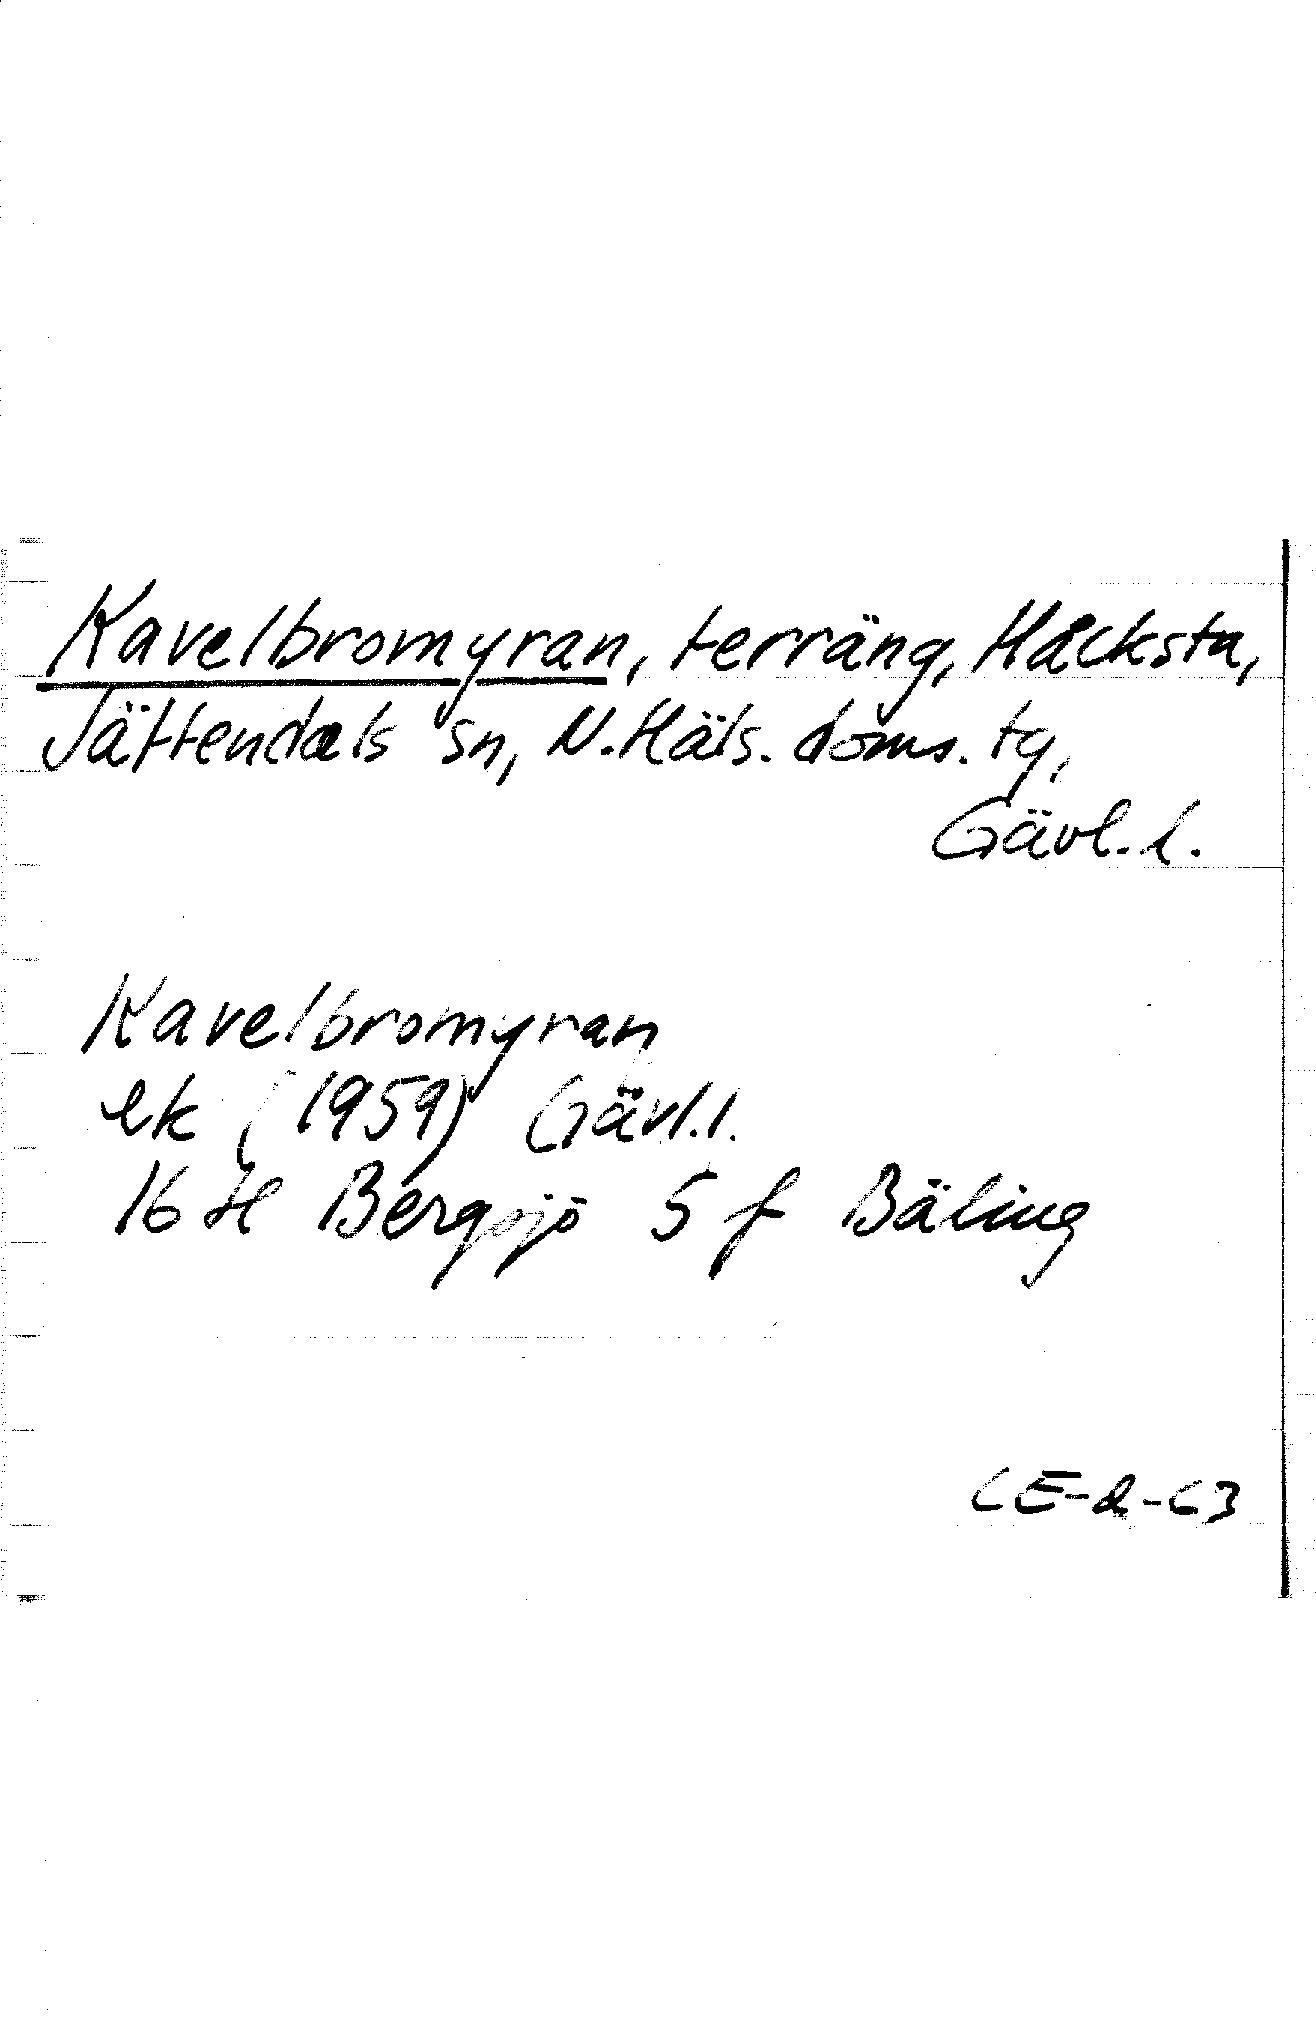 Kavelbromyran, terräng, Häcksta,
Jättendals sn, N. Häls. doms. tg,
Gävl. l.
Kavelbromyran
ek (1959) Gävl. l.
16 H Bergsjö 5 f Bäling